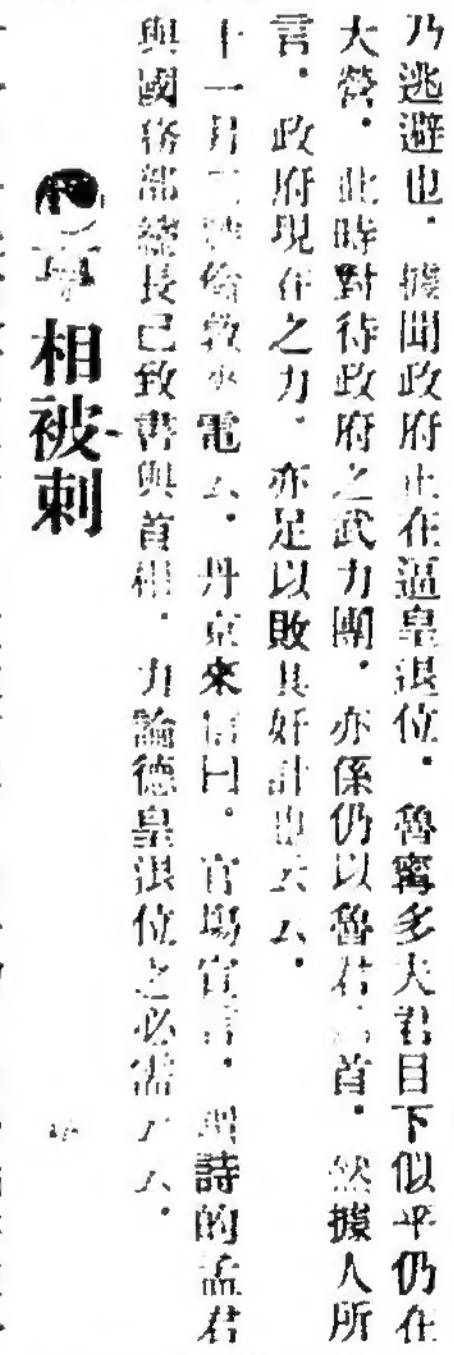 乃逃避也．據聞政府正在逼皇退位．魯寗多夫君目下似乎仍在
大營．此時對待政府之武力團．亦係仍以魯君為首．然據人所
言．政府現在之力．亦足以敗其奸計也云云．
十一月二號倫敦來電云．丹京來信曰．官場宣言．謂詩的孟君
與國務部總長已致書與首相．力論德皇退位之必需云云．
相被刺